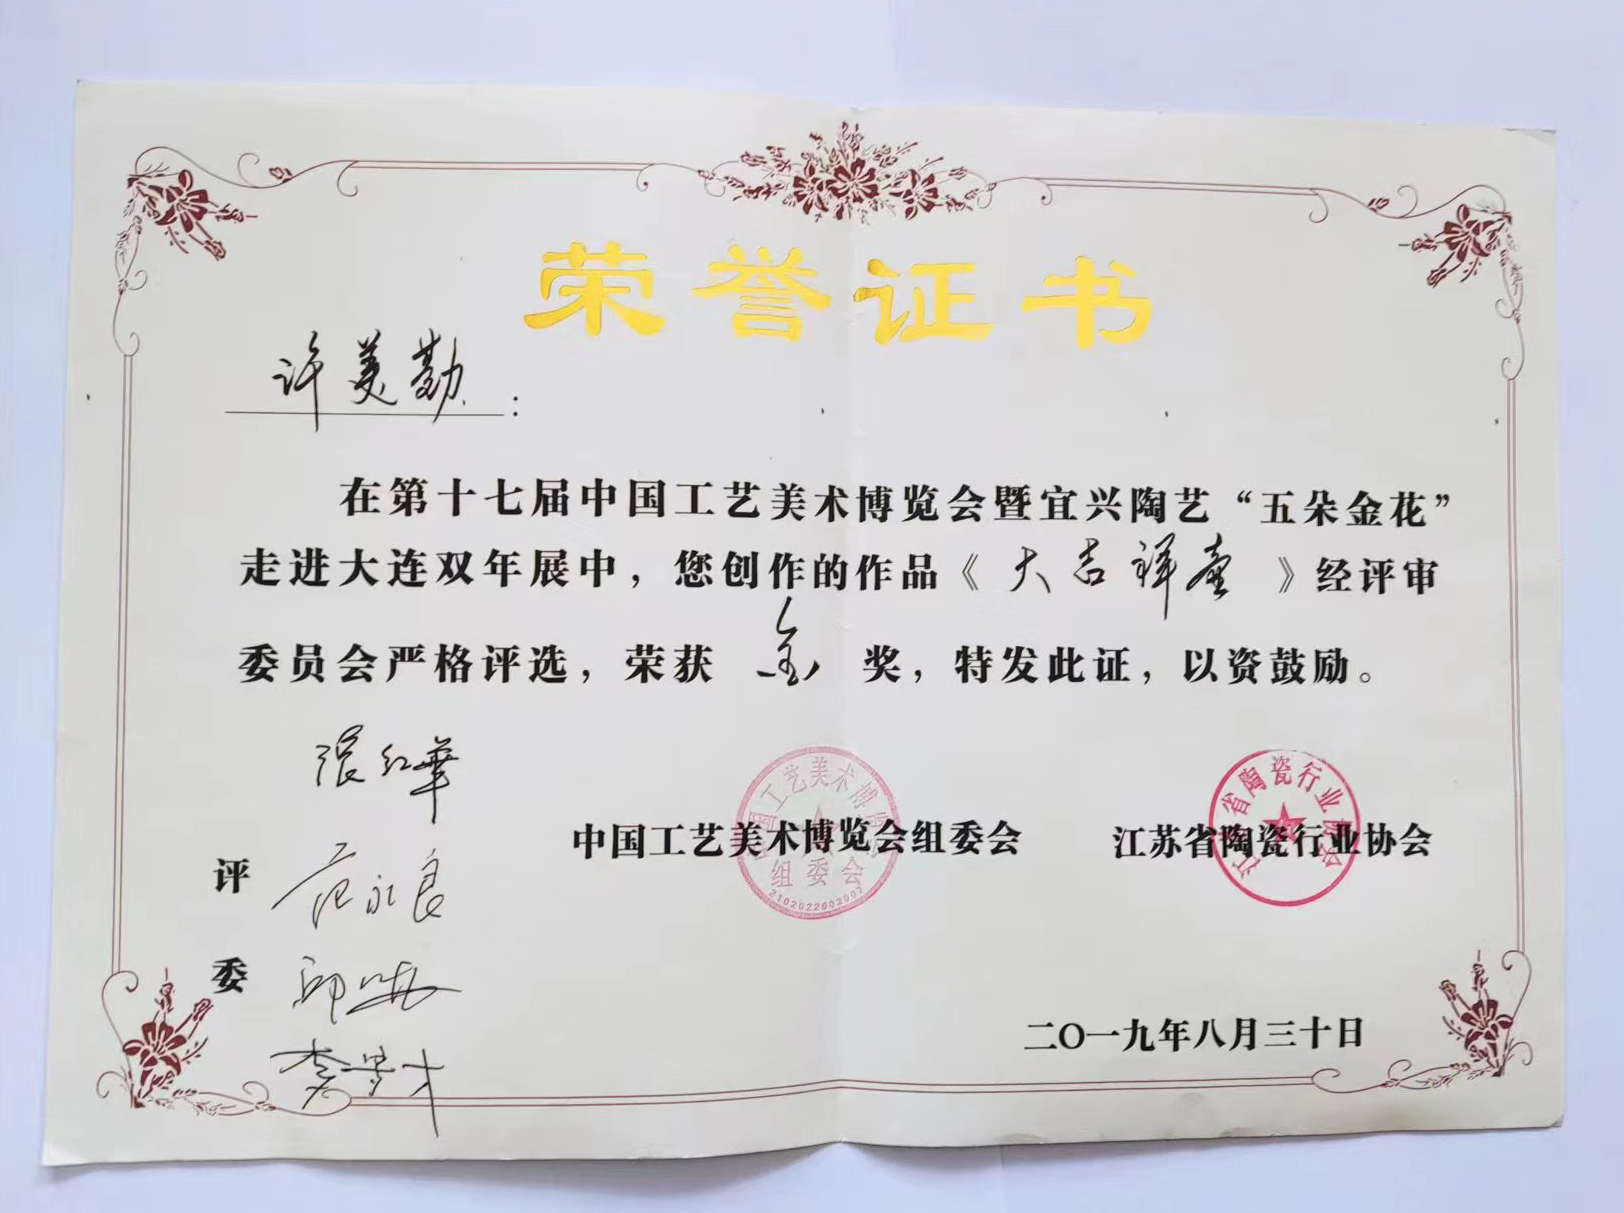 荣誉证书
许美勤:
在第十七届中国工艺美术博览会暨宜兴陶艺“五朵金花”
走进大连双年展中，您创作的作品《大吉祥壶》经评审
委员会严格评选，荣获 金 奖，特发此证，以资鼓励。
张红华
中国工艺美术博览会组委会 江苏省陶瓷行业协会
中国工艺美术博览会
组委会
2102022003007
江苏省陶瓷行业协会
评
范永良
委
二〇一九年八月三十日